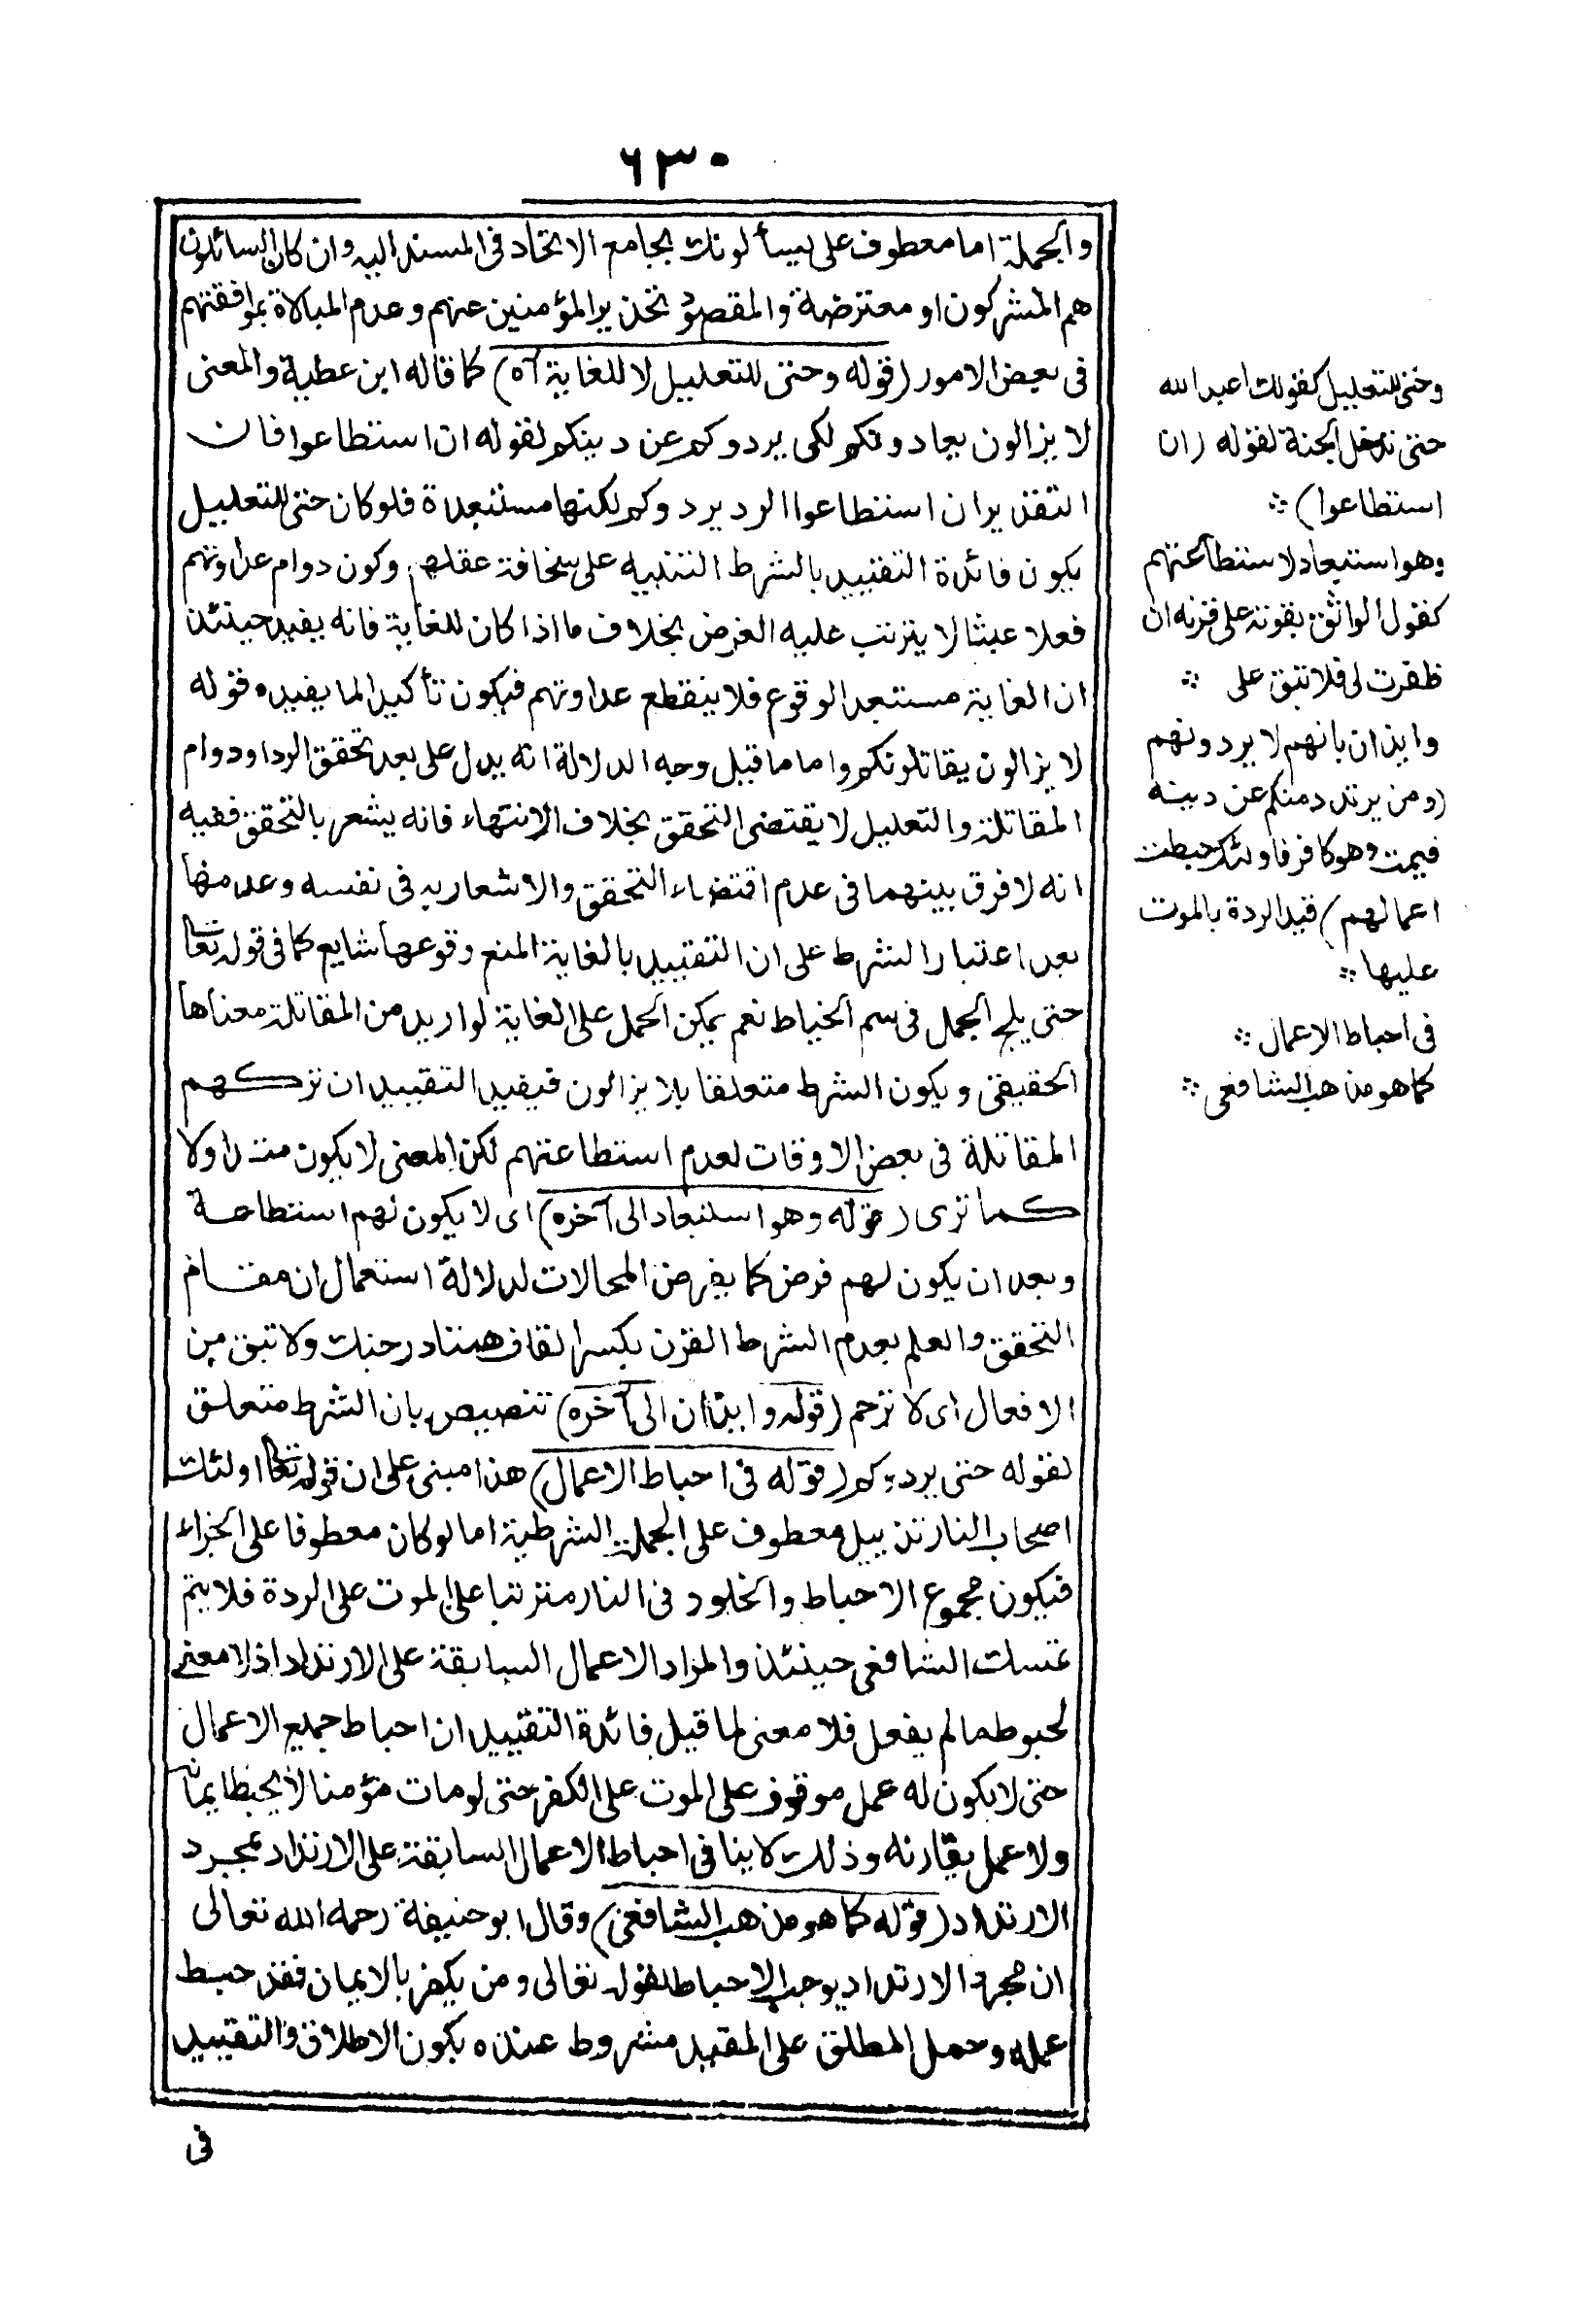 ٦٣٠
والجملة اما معطوف على يسألونك بجامع الاتحاد فى المسند اليه وان كان السائلون
هم المشركون او معترضة والمقصود تحذير المؤمنين عنهم وعدم المبالاة بموافقتهم
فى بعض الامور (قوله وحتى للتعليل لا للغاية آه) كما قاله ابن عطية والمعنى
لا يزالون يعادونكم لكى يردوكم عن دينكم لقوله ان استطاعوا فان
التقدير ان استطاعوا الرد يردوكم لكنها مستبعدة فلو كان حتى للتعليل
يكون فائدة التقييد بالشرط التنبيه على سخافة عقلهم وكون دوام عداوتهم
فعلا عبثا لا يترتب عليه الغرض بخلاف ما اذا كان للغاية فانه يفيد حينئذ
ان الغاية مستبعد الوقوع فلا ينقطع عداوتهم فيكون تأكيدا لما يفيده قوله
لا يزالون يقاتلونكم واما ما قيل وجه الدلالة انه يدل على بعد تحقق الرد او دوام
المقاتلة والتعليل لا يقتضى التحقق بخلاف الانتهاء فانه يشعر بالتحقق ففيه
انه لا فرق بينهما فى عدم اقتضاء التحقق والاشعار به فى نفسه وعدمها
بعد اعتبار الشرط على ان التقييد بالغاية المنع وقوعها شايع كما فى قوله تعا
حتى يلج الجمل فى سم الخياط نعم يمكن الحمل على الغاية لو اريد من المقاتلة معناها
الحقيقى ويكون الشرط متعلقا بلا يزالون فيفيد التقييد ان تركهم
المقاتلة فى بعض الاوقات لعدم استطاعتهم لكن المعنى لا يكون متداولا
كما ترى (قوله وهو استبعاد الى آخره) اى لا يكون لهم استطاعة
وبعد ان يكون لهم فرض كما يفرض المحالات لدلالة استعمال ان مقام
التحقق والعلم بعدم الشرط القرن بكسر القاف همتا در جنك ولا تبق من
الافعال اى لا ترحم (قوله وايذان الى آخره) تنصيص بان الشرط متعلق
لقوله حتى يردوكم (قوله فى احباط الاعمال) هذا مبنى على ان قوله تعا اولئك
اصحاب النار تذييل معطوف على الجملة الشرطية اما لو كان معطوفا على الجزاء
فيكون مجموع الاحباط والخلود فى النار مترتبا على الموت على الردة فلا يتم
تمسك الشافعى حينئذ والمراد الاعمال السابقة على الارتداد اذ لا معنى
لحبوط ما لم يفعل فلا معنى لما قيل فائدة التقييد ان احباط جميع الاعمال
حتى لا يكون له عمل موقوف على الموت على الكفر حتى لو مات مؤمنا لا يحبط ايمانه
ولا عمل يقارنه وذلك لا ينافى احباط الاعمال السابقة على الارتداد بمجرد
الارتداد (قوله كما هو مذهب الشافعى) وقال ابو حنيفة رحمه الله تعالى
ان مجرد الارتداد يوجب الاحباط لقوله تعالى ومن يكفر بالايمان فقد حبط
عمله وحمل المطلق على المقيد مشروط عنده بكون الاطلاق والتقييد
فى
وحتى للتعليل كقولك اعبد الله
حتى تدخل الجنة لقوله (ان
استطاعوا)
وهو استبعاد لاستطاعتهم
كقول الواثق بقوته على قرنه ان
ظفرت لى فلا تبق على
وايذان بانهم لا يردونهم
(ومن يرتدد منكم عن دينه
فيمت وهو كافر فاولئك حبطت
اعمالهم) قيد الردة بالموت
عليها
فى احباط الاعمال
كما هو مذهب الشافعى